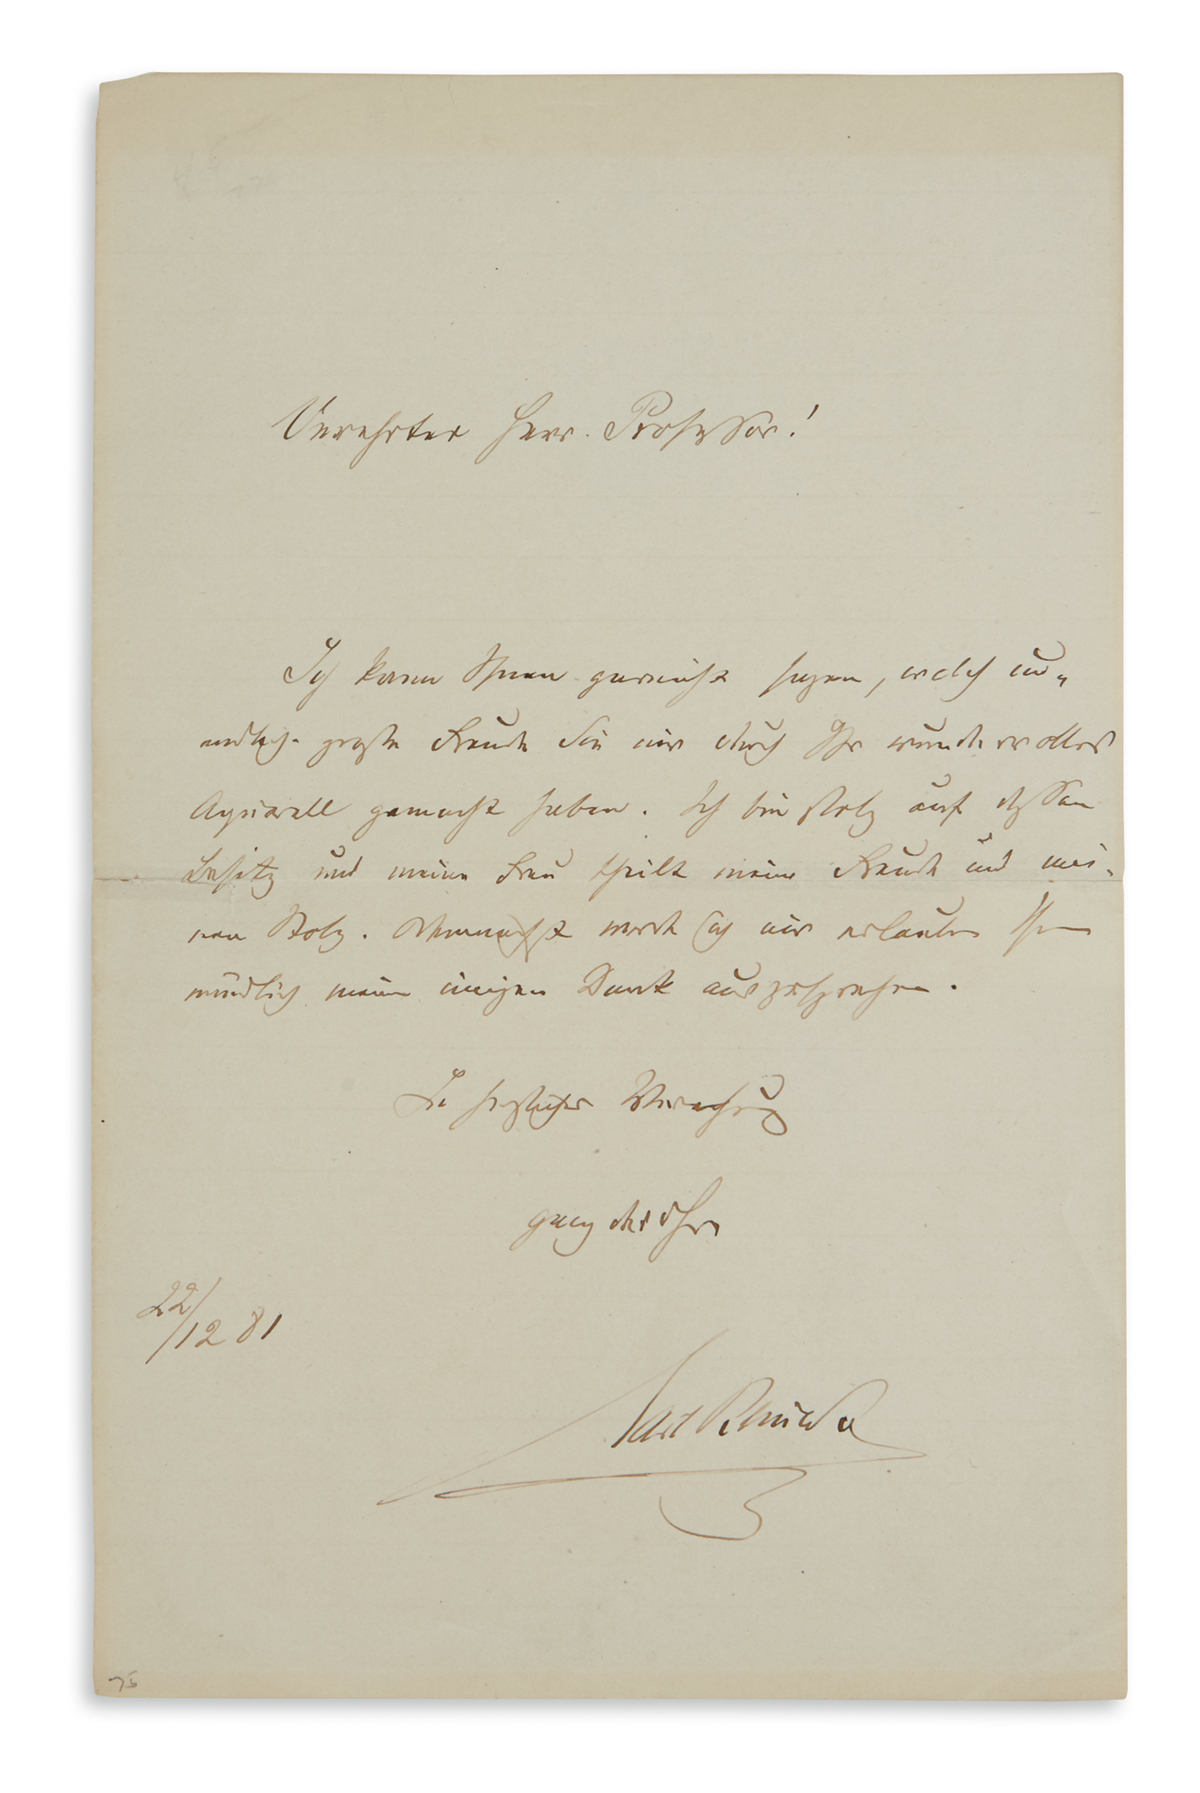 Verehrter Herr Professor!
Ich kann Ihnen garnicht sagen, welch un„
endlich große Freude Sie mir durch Ihr wundervolles
Aquarell gemacht haben. Ich bin stolz auf dessen
Besitz und meine Frau theilt meine Freude und mei-
nen Stolz. Demnächst werde ich mir erlauben Ihnen
mündlich meinen innigen Dank auszusprechen.
In herzlicher Verehrung
ganz der Ihre
22/12 81
75